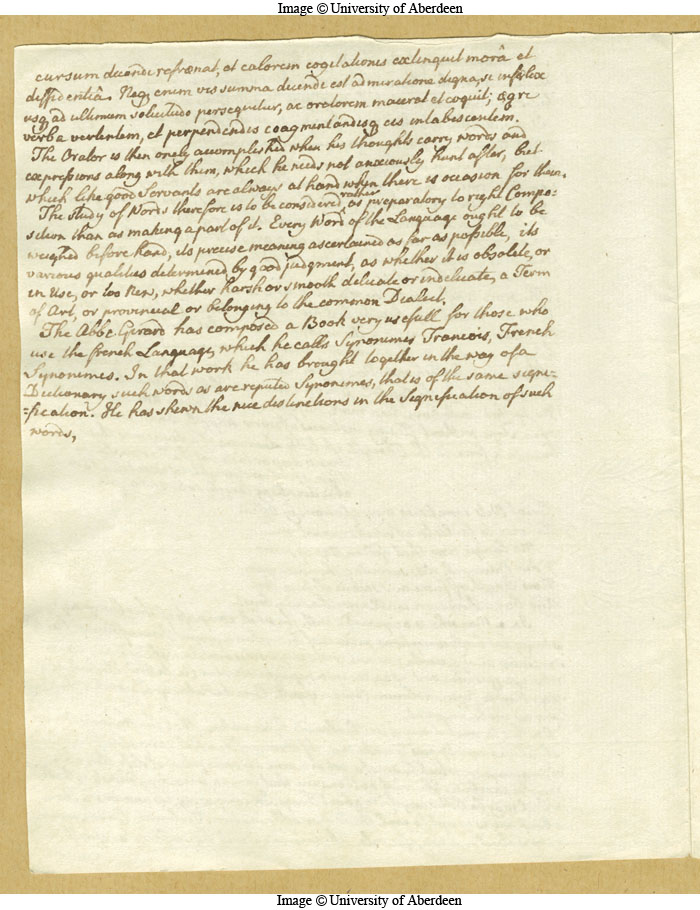 Image © University of Aberdeen
cursum dicendi refrænat, et calorem cogitationis extinguit morâ et
diffidentiâ. Neq; enim vis summa dicendi est admiratione digna, si infelix
usq; ad ultimum solicitudo persequitur, ac oratorem macerat et coquit; ægre
verba vertentem, et perpendendis coagmentandisq; eis intabescentem.
The Orator is then onely accomplished when his thoughts carry words and
expressions along with them, which he needs not anxiously hunt after, but
which like good Servants are always at hand when there is occasion for them.
The Study of Words therefore is to be considered rather as preparatory to right Compo=
sition than as making a part of it. Every Word of the Language ought to be
weighed before hand, its precise meaning ascertained as far as possible, its
various qualities determined by good judgment, as whether it is obsolete, or
in Use, or too New, whether harsh or smooth delicate or indelicate, a Term
of Art, or provincial or belonging to the common Dialect.
The Abbe Girard has composed a Book very usefull for those who
use the french Language, which he calls Synonimes Francois, French
Synonimes. In that work he has brought together in the way of a
Dictionary such words as are reputed Synonimes, that is of the same signi=
=fication. He has shewn the nice distinctions in the Signification of such
words,
Image © University of Aberdeen